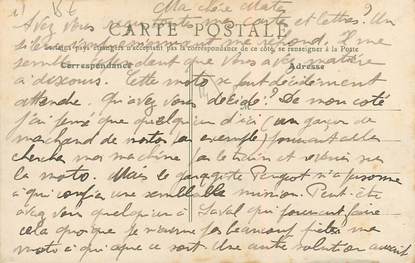 Ma chère Mater
Avez vous reçu toutes mes cartes et lettres ? Un
CARTE POSTALE
silence me répond. Il me
Tous les pays étrangers n'acceptent pas la correspondance de ce côté, se renseigner à la Poste
semble cependant que vous avez matière
Correspondance
Adresse
à discours. Cette moto se fait décidément
attendre. Qu'avez vous décidé ? De mon côté
j'ai pensé que quelqu'un d'ici (un garçon de
marchand de motos par exemple) pourrait aller
chercher ma machine par le train et revenir sur
la moto. Mais le garagiste Peugeot n'a personne
à qui confier une semblable mission. Peut-être
avez vous quelqu'un à Laval qui pourrait faire
cela quoique je n'aime pas beaucoup prêter ma
moto à qui que ce soit. Une autre solution aurait